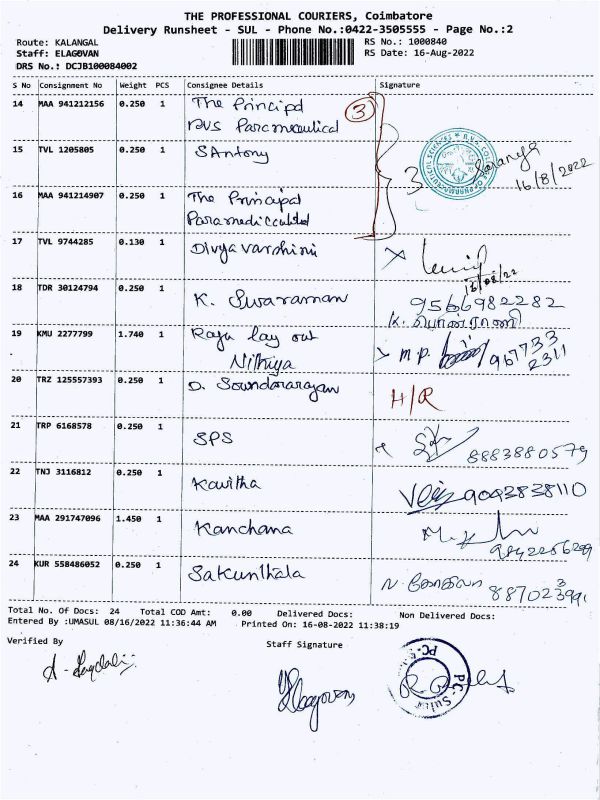 THE PROFESSIONAL COURIERS, Coimbatore
Delivery Runsheet - SUL - Phone No.:0422-3505555 - Page No.:2
Route: KALANGAL RS No.: 1000840
Staff: ELAGOVAN RS Date: 16-Aug-2022
DRS No.: DCJB100084002
S No Consignment No Weight PCS Consignee Details Signature
14 MAA 941212156 0.250 1 The Principal
RVS Paramceutical
3
15 TVL 1205805 0.250 1 SAntony
3 Saranya
16/8/2022
16 MAA 941214907 0.250 1 The Principal
17 TVL 9744285 0.130 1 Divya varshini
16/08/22
18 TDR 30124794 0.250 1 K. Sivaraman 9566982282
19 KMU 2277799 1.740 1 Raju lay out
Nithiya M.P. 967733
2311
20 TRZ 125557393 0.250 1 D. Soundararajan H/R
21 TRP 6168578 0.250 1 SPS 8883880579
22 TNJ 3116812 0.250 1 Kavitha 9093838110
23 MAA 291747096 1.450 1 Kanchana
24 KUR 558486052 0.250 1 Sakunthala
Total No. Of Docs: 24 Total COD Amt: 0.00 Delivered Docs: Non Delivered Docs:
Entered By :UMASUL 08/16/2022 11:36:44 AM Printed On: 16-08-2022 11:38:19
Verified By Staff Signature
Elagovan